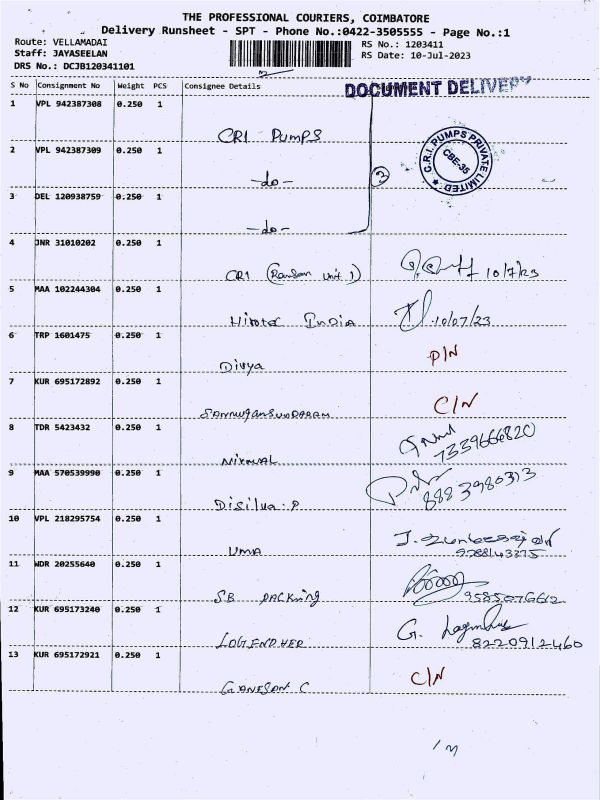 THE PROFESSIONAL COURIERS, COIMBATORE
Delivery Runsheet - SPT - Phone No.:0422-3505555 - Page No.:1
Route: VELLAMADAI
RS No.: 1203411
Staff: JAYASEELAN
RS Date: 10-Jul-2023
DRS No.: DCJB120341101
S No Consignment No Weight PCS Consignee Details
DOCUMENT DELIVERY
1 VPL 942387308 0.250 1
CRI PUMPS
C.R.I. PUMPS PRIVATE LIMITED
CBE-35
2 VPL 942387309 0.250 1
-do-
3
3 DEL 120938759 0.250 1
-do-
4 JNR 31010202 0.250 1
CRI ( Unit 1) 10/7/23
5 MAA 102244304 0.250 1
India 10/07/23
6 TRP 1601475 0.250 1
Divya P/N
7 KUR 695172892 0.250 1
C/N
8 TDR 5423432 0.250 1
NIRMAL 7339666820
9 MAA 570539990 0.250 1
Disilva.P 8883980313
10 VPL 218295754 0.250 1
UMA
11 WDR 20255640 0.250 1
SB PACKING 9585076612
12 KUR 695173240 0.250 1
G. 8220912460
13 KUR 695172921 0.250 1
GANESAN C C/N